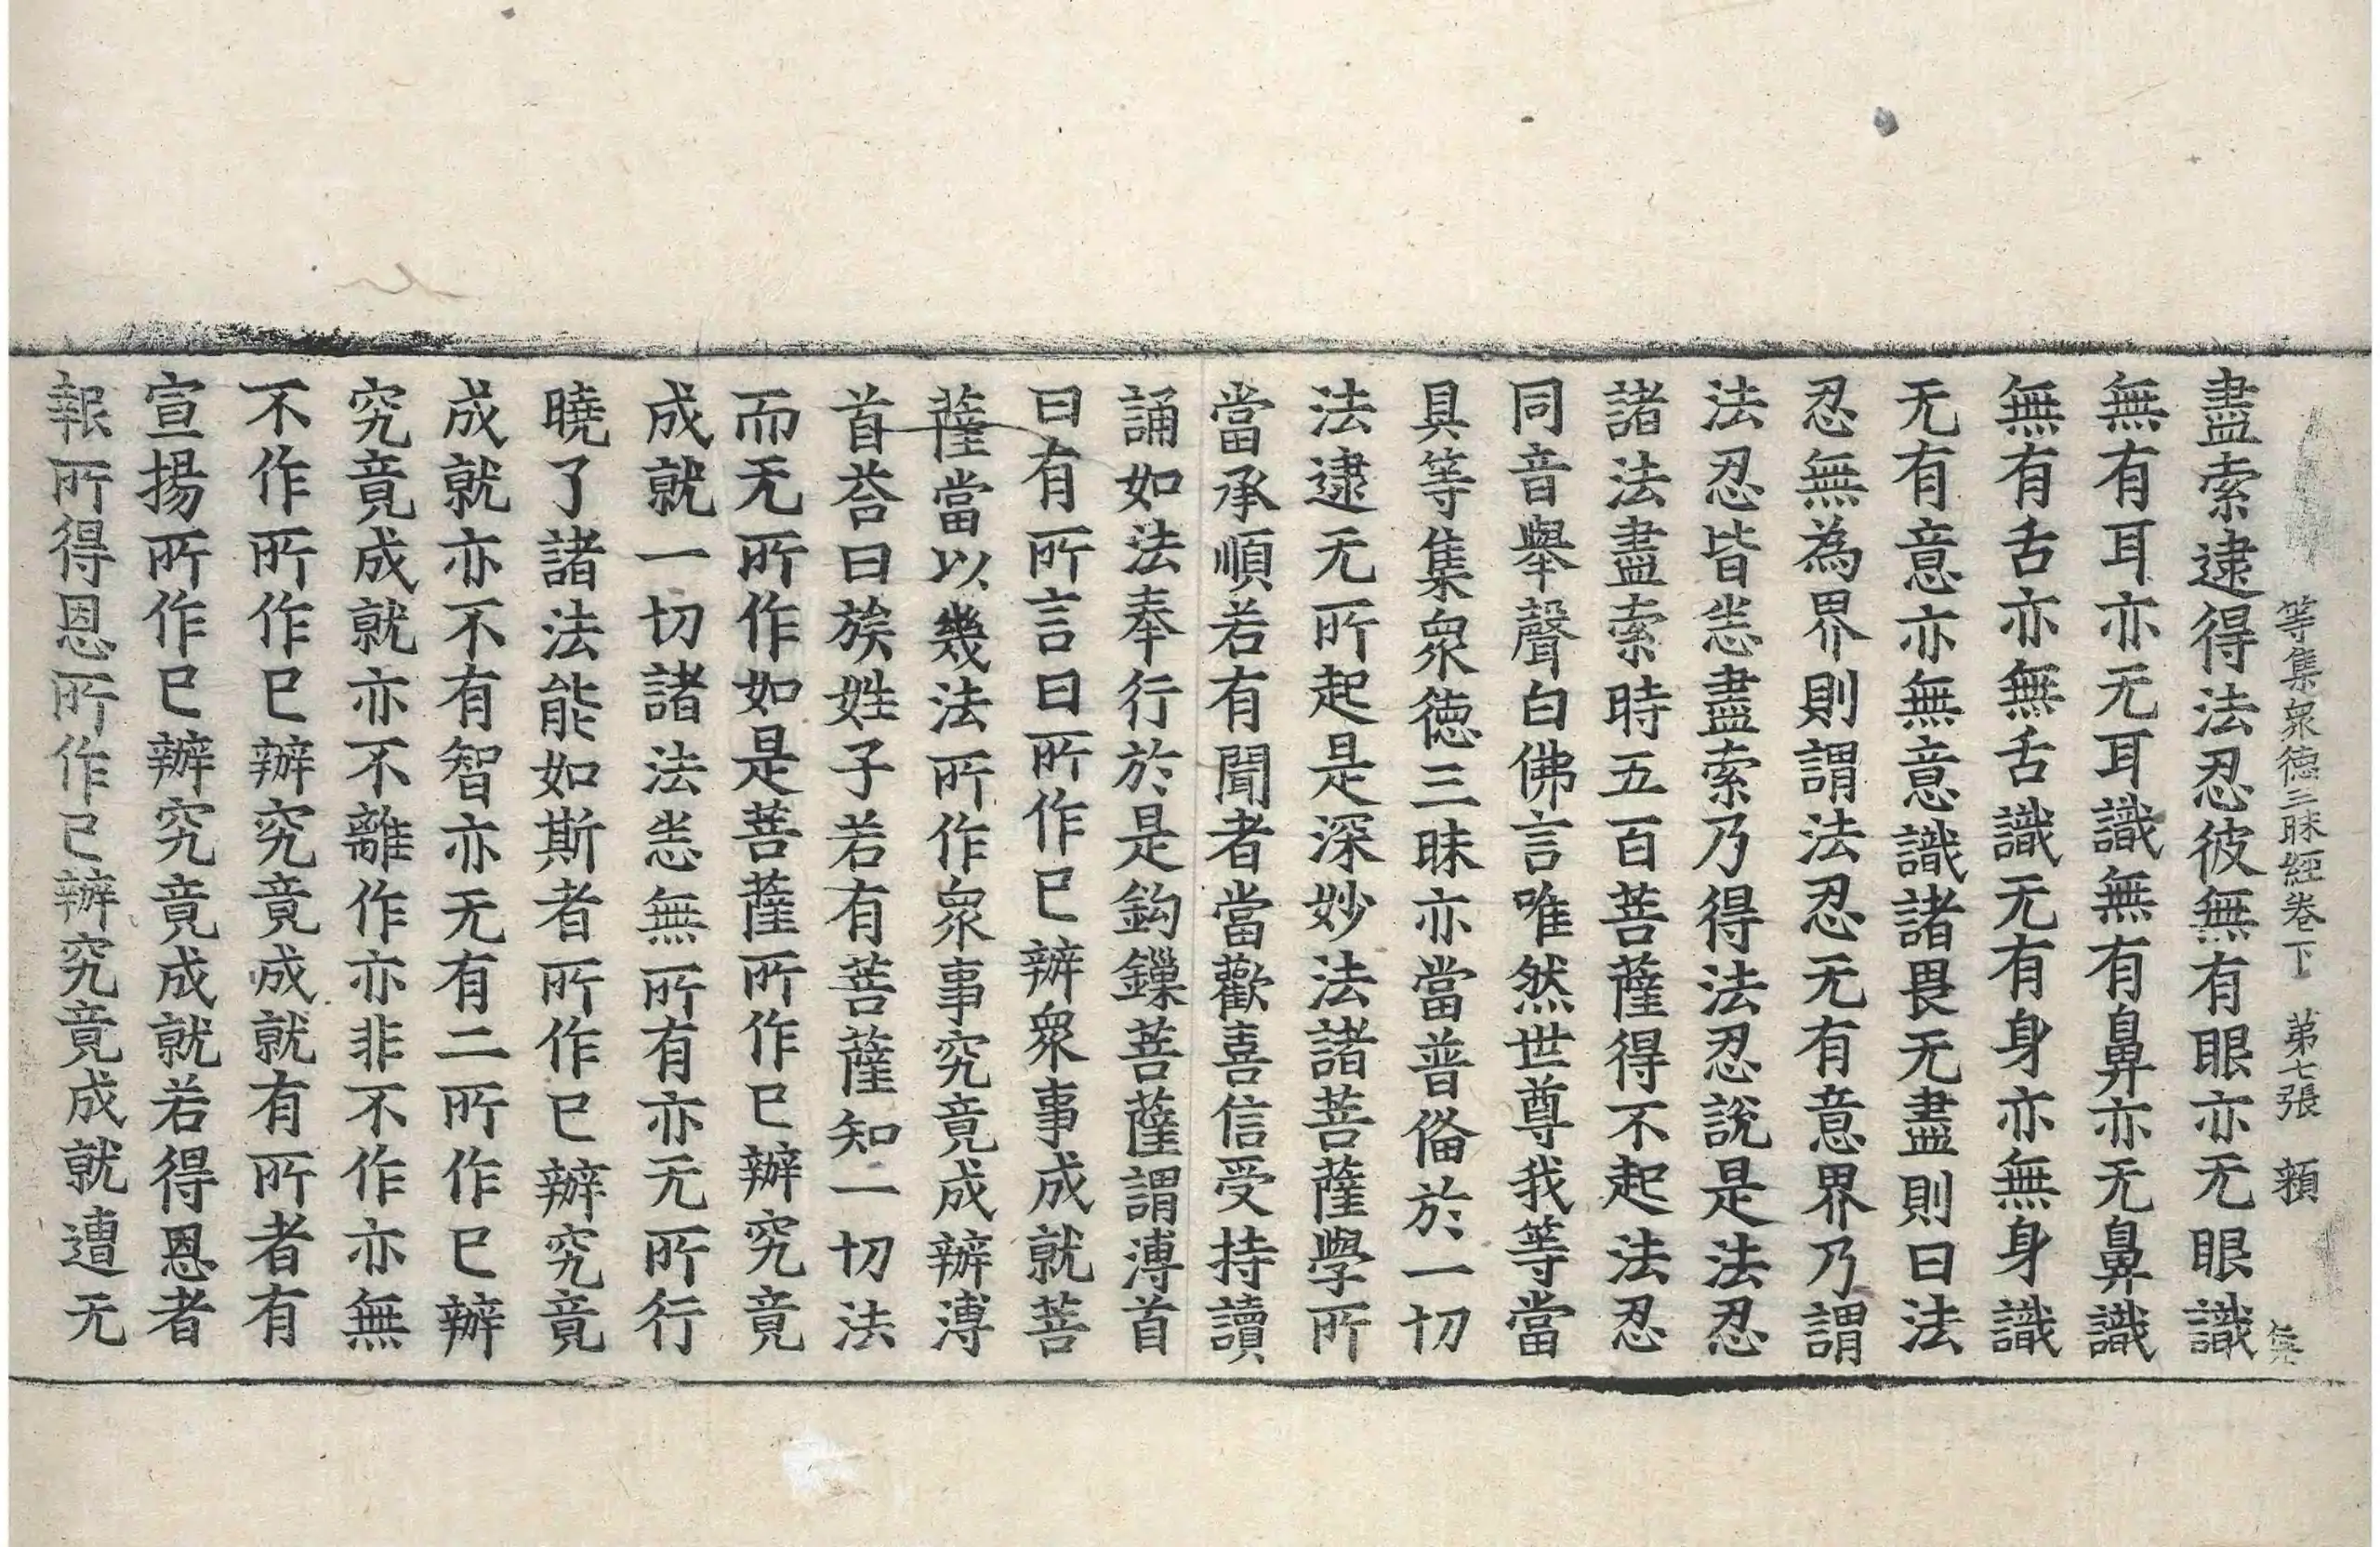 等集衆德三昧經卷下 第七張 頼
盡索逮得法忍彼無有眼亦无眼識
無有耳亦无耳識無有鼻亦无鼻識
無有舌亦無舌識无有身亦無身識
无有意亦無意識諸畏无盡則曰法
忍無為界則謂法忍无有意界乃謂
法忍皆悉盡索乃得法忍說是法忍
諸法盡索時五百菩薩得不起法忍
同音舉聲白佛言唯然世尊我等當
具等集衆德三昧亦當普俻於一切
法逮无所起是深妙法諸菩薩學所
當承順若有聞者當歡喜信受持讀
誦如法奉行於是鈎鏁菩薩謂溥首
曰有所言曰所作已辦衆事成就菩
薩當以幾法所作衆事究竟成辦溥
首荅曰族姓子若有菩薩知一切法
而无所作如是菩薩所作已辦究竟
成就一切諸法悉無所有亦无所行
曉了諸法能如斯者所作已辦究竟
成就亦不有智亦无有二所作已辦
究竟成就亦不離作亦非不作亦無
不作所作已辦究竟成就有所者有
宣揚所作已辦究竟成就若得恩者
報所得恩所作已辦究竟成就遭无